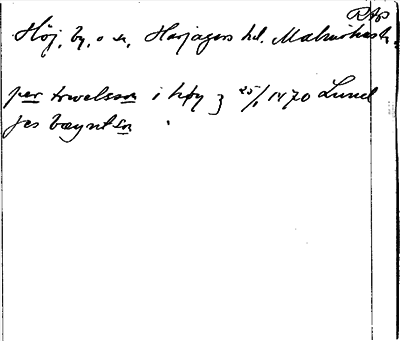 RAP
Höj, by, o sn, Harjagers hd. Malmöhus l.
per trwelsson i høy 3 25/1 1470 Lund
jes bæyntson "